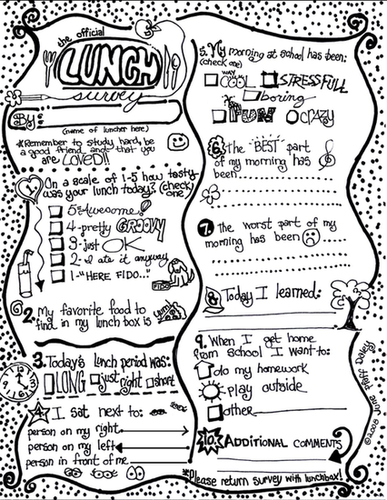 the official
LUNCH
survey
By:
(name of luncher here)
*Remember to study hard, be
a good friend and that you
are LOVED!!
1. On a scale of 1-5 how tasty
was your lunch today? (check
one)
5-Awesome!
4-pretty GROOVY
3-just OK
2-I ate it anyway
1-"HERE FIDO..."
2. My favorite food to
find in my lunch box is
3. Today's lunch period was:
LONG just right short
4. I sat next to:
person on my right
person on my left
person in front of me
5. My morning at school has been:
(check one)
way COOL STRESSFULL
boring
FUN CRAZY
6. The "BEST" part
of my morning has
been
7. The worst part of my
morning has been
8. Today I learned:
9. When I get home
from school I want to:
do my homework
play outside
other
10. Additional Comments
*Please return survey with lunchbox!